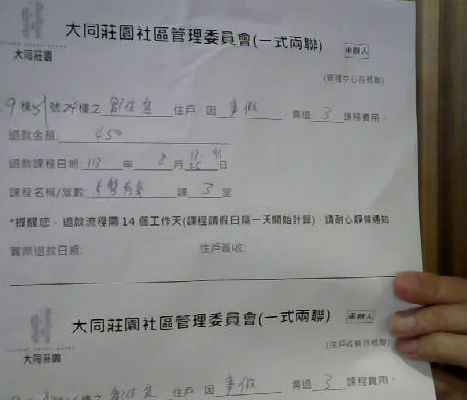 大同莊園社區管理委員會(一式兩聯)
承辦人
大同莊園
(管理中心存根聯)
9 棟51號24樓之 住戶,因 事假 需退 3 課程費用。
退款金額: 450
退款課程日期: 113 年 8 月 25 日
課程名稱/堂數: 課 3 堂
*提醒您,退款流程需 14 個工作天(課程請假日隔一天開始計算),請耐心靜候通知
實際退款日期: 住戶簽收:
大同莊園社區管理委員會(一式兩聯)
承辦人
大同莊園
(住戶收執存根聯)
樓之 住戶,因 事假 需退 3 課程費用。